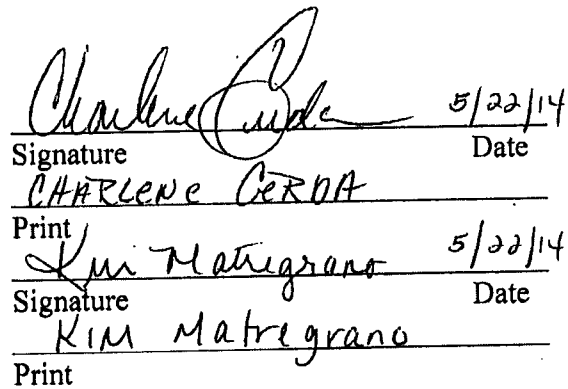 Charlene Cerda 5/22/14
Signature Date
CHARLENE CERDA
Print
Kim Matregrano 5/22/14
Signature Date
KIM Matregrano
Print